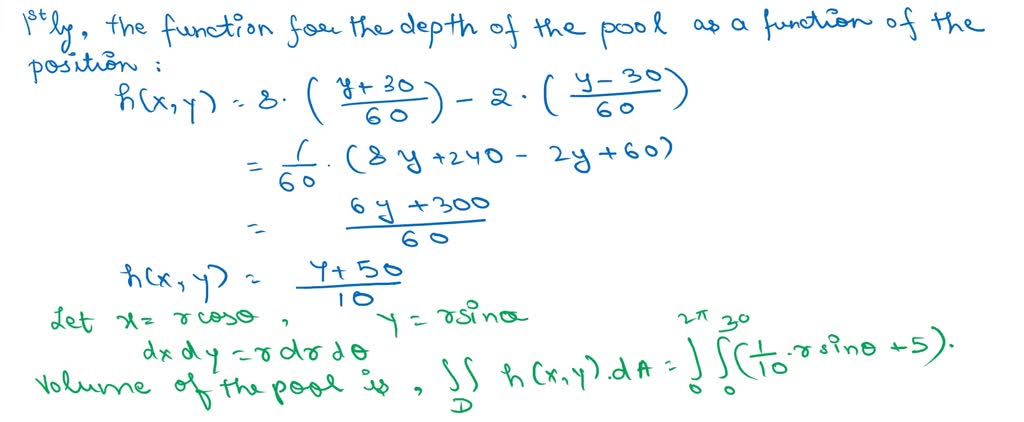 1st ly, the function for the depth of the pool as a function of the
position :
h(x,y) = 8. ( y+30 / 60 ) - 2. ( y-30 / 60 )
= 1/60 . (8y +240 - 2y +60)
= 6y +300 / 60
h(x,y) = y+50 / 10
Let x = r cosθ , y = r sinθ
dx dy = r dr dθ
Volume of the pool is , ∬_D h(x,y).dA = ∫_0^{2π} ∫_0^{30} ( 1/10 . r sinθ +5).